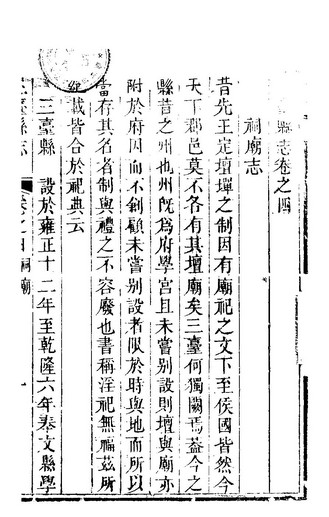 縣志卷之四
祠廟志
昔先王定壇墠之制因有廟祀之文下至侯國皆然今
天下郡邑莫不各有其壇廟矣三臺何獨闕焉葢今之
縣昔之州也州既爲府學宮且未嘗別設則壇與廟亦
附於府因而不剏顧未嘗別設者限於時與地而所以
當存其名者制與禮之不容廢也書稱淫祀無福茲所
載皆合於祀典云
三臺縣 設於雍正十二年至乾隆六年奉文縣學
三臺縣志 卷之四祠廟 一